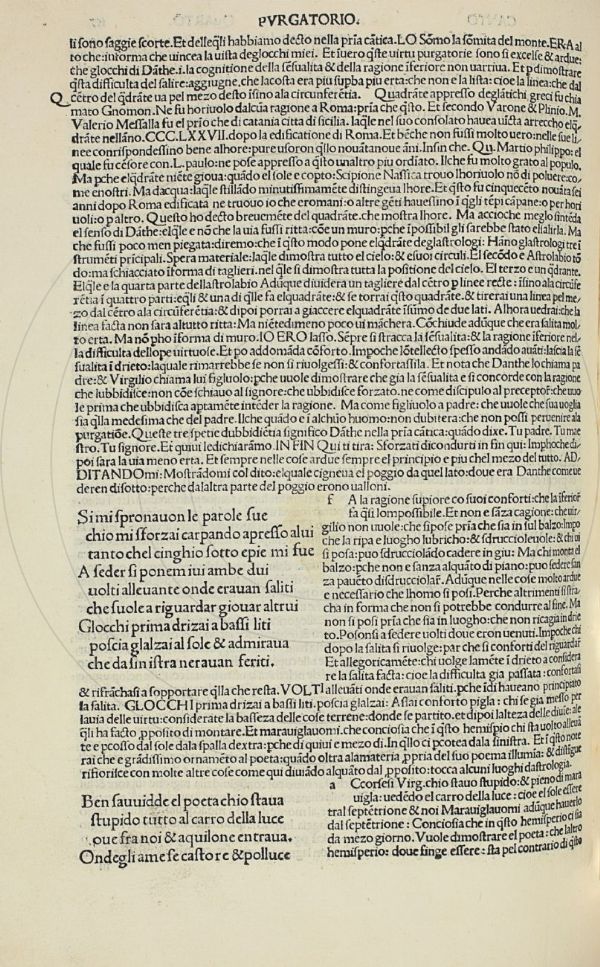 PVRGATORIO.
li sono saggie scorte. Et delleq̃li habbiamo decto nella pria cãtica. LO Sõmo la sõmita del monte. ERA al
to che: informa che uincea la uista deglocchi miei. Et fuero q̃ste uirtu purgatorie sono si excelse & ardue:
che glocchi di Dãthe .i. la cognitione della sẽsualita & della ragione iferiore non uarriua. Et p dimostrare
q̃sta difficulta del salire: aggiugne, che lacosta era piu supba piu erta: che non e la lista: cioe la linea: che dal
Q cẽtro del q̃drãte ua pel mezo desto isino ala circunferẽtia. Quadrãte appresso deglãtichi greci fu chia
mato Gnomon. Ne fu horiuolo dalcũa ragione a Roma: pria che q̃sto. Et secondo Varone & Plinio. M.
Valerio Messalla fu el prio che di catania citta di sicilia. laq̃le nel suo consolato hauea uicta arreccho elq̃
drãte nellãno. CCC.LXXVII. dopo la edificatione di Roma. Et bẽche non fussi molto uero: nelle sue li
nee conrispondessino bene alhore: pure usoron q̃llo nouãtanoue ãni. Insin che. Qu. Martio philippo: el
quale fu cẽsore con. L. paulo: ne pose appresso a q̃sto unaltro piu ordiato. Ilche fu molto grato al popolo.
Ma pche elq̃drãte niẽte gioua: quãdo el sole e copto: Scipione Nassica trouo lhoriuolo nõ di poluere: co
me e nostri. Ma dacqua: laq̃le stillãdo minutissimamẽte distingeua lhore. Et q̃sto fu cinquecẽto nouãtasei
anni dopo Roma edificata ne truouo io che e romani: o altre gẽti hauessino ĩ q̃gli tẽpi cãpane: o per hori
uoli: o p altro. Questo ho decto breuemẽte del quadrãte, che mostra lhore. Ma accioche meglo sintẽda
el senso di Dãthe: elq̃le e nõ che la uia fussi ritta: cõe un muro: pche ipossibil gli sarebbe stato elialirla. Ma
che fussi poco men piegata: diremo: che ĩ q̃sto modo pone elq̃drãte deglastrologi: Hãno glastrologi tre ĩ
strumẽti pricipali. Spera materiale: laq̃le dimostra tutto el cielo: & e suoi circuli. El secõdo e Astrolabio tõ
do: ma schiacciato iforma di taglieri. nel q̃le si dimostra tutta la positione del cielo. El terzo e un q̃drante.
Elq̃le e la quarta parte dellastrolabio Adũque diuidera un tagliere dal cẽtro p linee recte: isino ala circunfe
rẽtia ĩ quattro parti: eq̃li & una di q̃lle fa elquadrãte: & se torrai q̃sto quadrãte. & tirerai una linea pel me
zo dal cẽtro ala circũferẽtia: & dipoi porrai a giacere elquadrãte isumo de due lati. Alhora uedrai: che la
linea facta non sara altutto ritta: Ma niẽtedimeno poco ui mãchera. Cõchiude adũque che era salita mol
to erta. Ma nõ pho iforma di muro. IO ERO lasso. Sẽpre si stracca la sẽsualita: & la ragione iferiore nel
la difficulta dellope uirtuose. Et po addomãda cõforto. Impoche lõtellecto spesso andãdo auãti: lascia la sẽ
sualita ĩ drieto: laquale rimarrebbe se non si riuolgessi: & confortassila. Et nota che Danthe lo chiama pa
dre: & Virgilio chiama lui figluolo: pche uuole dimostrare che gia la sẽsualita e si concorde con la ragione
che iubbidisce: non cõe schiauo al signore: che ubbidisce forzato. ne come discipulo al preceptor̃: che uuo
le prima che ubbidisca aptamẽte intẽder la ragione. Ma come figliuolo a padre: che uuole che sua uoglia
sia q̃lla medesima che del padre. Ilche quãdo e ĩ alchũo huomo: non dubitera: che non possi peruenire ala
purgatiõe. Queste tre spetie dubbidiẽtia significo Dãthe nella pria cãtica: quãdo dixe. Tu padre. Tu me
stro. Tu signore. Et quiui le dichiarãmo. IN FIN Qui ti tira: Sforzati dicondurti in fin qui: Impho che di
poi sara la uia meno erta. Et sempre nelle cose ardue sempre el principio e piu chel mezo del tutto. AD/
DITANDOmi: Mostrãdomi col dito: elquale cigneua el poggio da quel lato: doue era Danthe come ue
deren disotto: perche dalaltra parte del poggio erono ualloni.
Si mi spronauon le parole sue
chio mi sforzai carpando apresso alui
tanto chel cinghio sotto e pie mi fue
A seder si ponemi iui ambe dui
uolti alleuante onde erauan saliti
che suole a riguardar giouar altrui
Glocchi prima drizai a bassi liti
poscia glalzai al sole & admiraua
che da sinistra nerauan feriti.
f A la ragione supiore co suoi conforti: che la iferior
fa q̃ll lompossibile. Et non e sãza cagione: che uir
gilio non uuole: che sipose pria che sia in sul balzo: Impo
che la ripa e luogho lubricho: & sdruccioleuole: & chi ui
si posa: puo sdrucciolãdo cadere in giu: Ma chi monta el
balzo: pche non e sanza alquãto di piano: puo sedere san
za pauẽto disdrucciolar̃. Adũque nelle cose molto ardue
e necessario che lhomo si posi. Perche altrimenti si stra
cha in forma che non si potrebbe condurre al fine. Ma
non si posi pria che sia in luogho: che non ricagia in drie
to. Posonsi a sedere uolti doue eron uenuti. Impoche chi
dopo la salita si riuolge: par che si conforti del riguardar̃
Et allegoricamẽte: chi uolge lamẽte ĩ drieto a considera
re la salita facta: cioe la difficulta gia passata: confortasi
& rifrãchasi a sopportare q̃lla che resta. VOLTI alleuãti onde erauan saliti. pche idi haueano principiato
la salita. GLOCCHI prima drizai a bassi liti. poscia glalzai: Assai conforto pigla: chi se gia messo per
lauia delle uirtu: considerate la bassezza delle cose terrene: donde se partito. et dipoi lalteza delle diuine: ale
q̃li ha facto pposito di montare. Et marauiglauomi. che conciosia che ĩ q̃sto hemispio chi sta uolto alleuã
te e pcosso dal sole dala spalla dextra: pche di quiui e mezo di. In q̃llo ci pcotea dala sinistra. Et ĩ q̃sto note
rai che e grãdissimo ornamẽto al poeta: quãdo oltra alamateria ppria del suo poema illumia: & distigue
rifiorisce con molte altre cose come qui diuiãdo alquãto dal pposito: tocca alcuni luoghi dastrologia.
Ben sauuidde el poeta chio staua
stupido tutto al carro della luce
oue fra noi & aquilone entraua.
Ondegli ame se castore & polluce
a Ccorsesi Virg. chio stauo stupido: & pieno di mara
uigla: uedẽdo el carro della luce: cioe el sole essere
tral septẽtrione & noi Marauiglauomi adũque hauerlo
dal septẽtrione: Conciosia che in q̃sto hemisperio ci sia
da mezo giorno. Vuole dimostrare el poeta: che laltro
hemisperio: doue finge essere: sta pel contrario di q̃sto